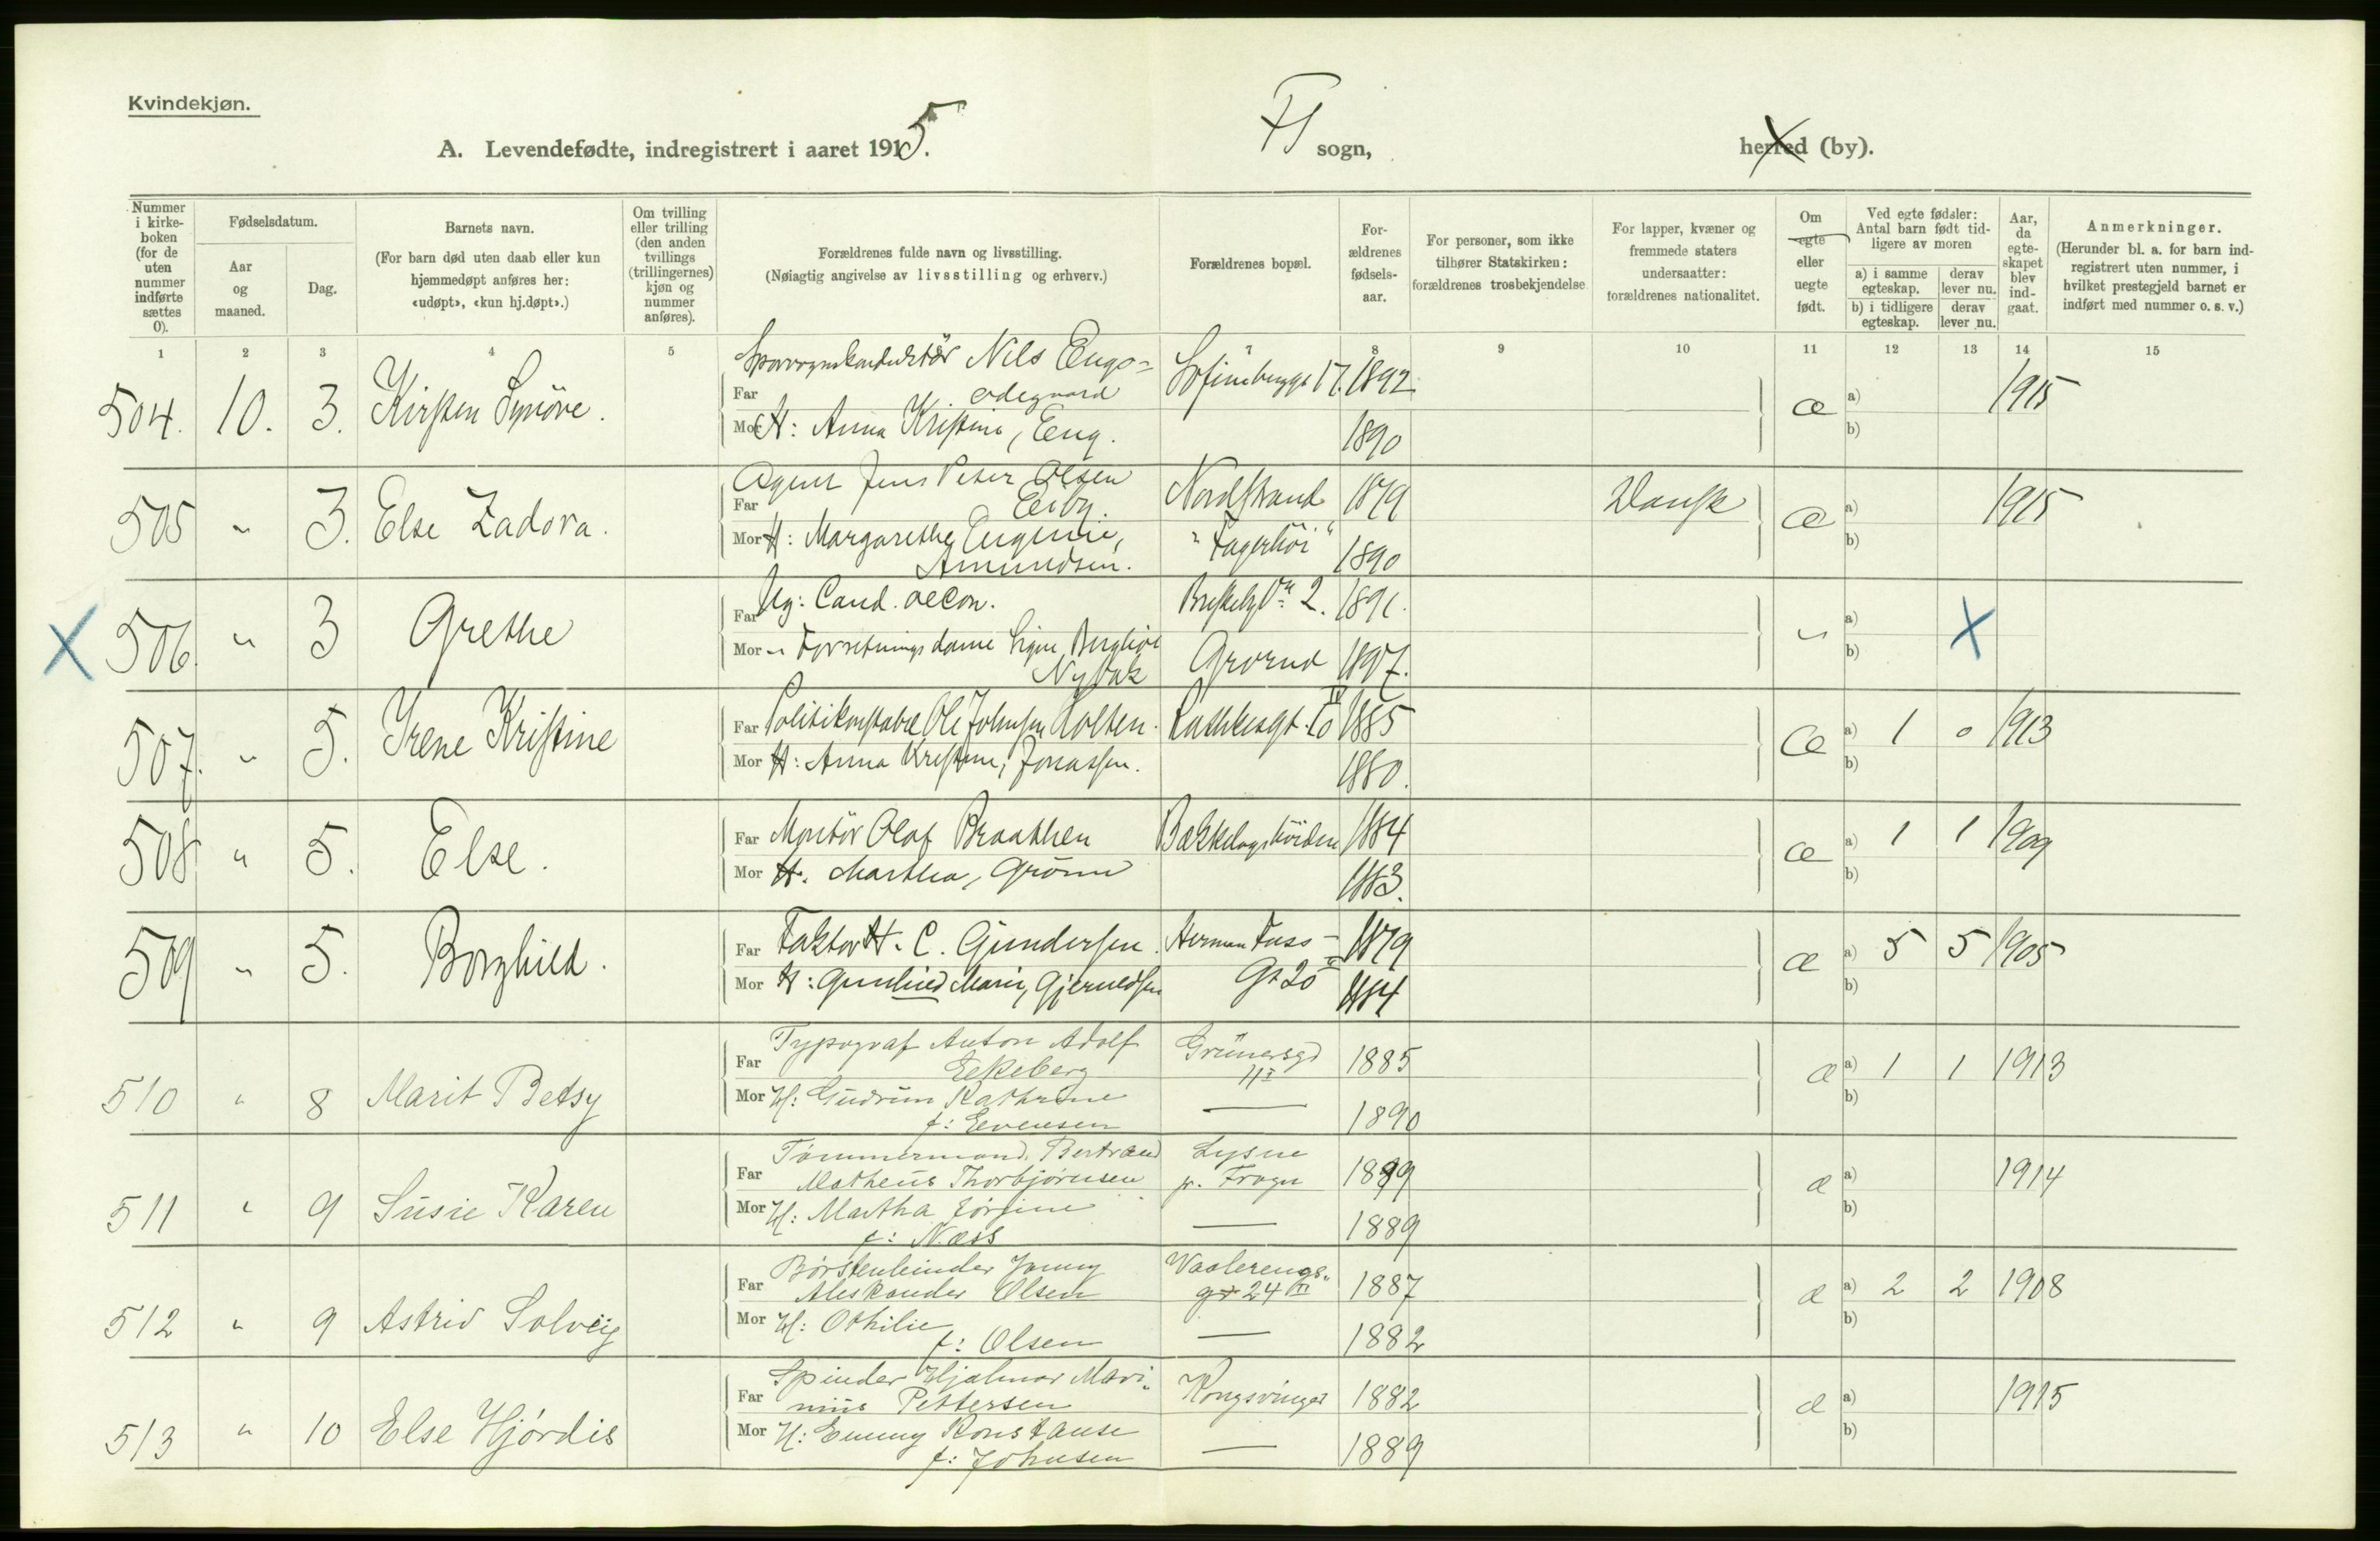 Kvindekjøn.
A. Levendefødte, indregistrert i aaret 1915.
sogn,
herred (by).
Nummer i kirke-boken (for de uten nummer indførte sættes 0).
Fødselsdatum.
Aar og maaned.
Dag.
Barnets navn.
(For barn død uten daab eller kun hjemmedøpt anføres her: «udøpt», «kun hj.døpt».)
Om tvilling eller trilling (den anden tvillings (trillingernes) kjøn og nummer anføres).
Forældrenes fulde navn og livsstilling.
(Nøiagtig angivelse av livsstilling og erhverv.)
Forældrenes bopæl.
For-ældrenes fødsels-aar.
For personer, som ikke tilhører Statskirken: forældrenes trosbekjendelse
For lapper, kvæner og fremmede staters undersaatter: forældrenes nationalitet.
Om egte eller uegte født.
Ved egte fødsler: Antal barn født tid-ligere av moren
a) i samme egteskap.
derav lever nu.
b) i tidligere egteskap.
derav lever nu.
Aar, da egte-skapet blev ind-gaat.
Anmerkninger.
(Herunder bl. a. for barn ind-registrert uten nummer, i hvilket prestegjeld barnet er indført med nummer o. s. v.)
1 2 3 4 5 7 8 9 10 11 12 13 14 15
504. 10. 3. Kirsten Synöve.
Far Nils Engo=
odegaard 17. 1892
Mor H: Anna Kristine, Eng. 1890
æ a) b) 1915
505 " 3. Else Zadora.
Far Agent Jens Peter Olsen
Eiby. Nordstrand 1879 Dansk
Mor H: Margarethe Eugenie,
Amundsen. "Fagerhöi" 1890
æ a) b) 1915
X 506. " 3 Grethe
Far Ug: Cand. oecon. 2. 1891.
Mor " Forretningsdame Signe Bergliot
Nybak Grorud 1897.
" a) b) X
507. " 5. Irene Kristine
Far Politikonstabel Ole Johnsen Holten. 10 IV 1885
Mor H: Anna Kristine, Jonassen. 1880.
æ a) 1 0 1913
b)
508 " 5. Else.
Far Montör Olaf Braathen Bækkelagshöiden 1884
Mor H. Martha, Grönn 1883.
æ a) 1 1 1909
b)
509 " 5. Borghild.
Far Faktor H. C. Gundersen. Herman Foss-
gt 20 1879
Mor H: Gunhild Marie, Gjerueldsen 1884
æ a) 5 5 1905
b)
510 " 8 Marit Betsy
Far Typograf Anton Adolf
Eekeberg Grünersgd
11 I 1885
Mor H: Gudrun Kathrine
f: Evensen — 1890
æ a) 1 1 1913
b)
511 " 9 Susie Karen
Far Tømmermand Bertrand
Matheus Thorbjørnsen Lysne
p. Frogn 1889
Mor H: Martha Jørgine
f: Næss — 1889
æ a) b) 1914
512 " 9 Astrid Solveig
Far Børstenbinder Jonny
Aleskander Olsen Vaalerengs-
gt 24 III 1887
Mor H: Othilie
f: Olsen — 1882
æ a) 2 2 1908
b)
513 " 10 Else Hjørdis
Far Spinder Hjalmar Mari-
nius Pettersen Kongsvinger 1882
Mor H: Emmy Konstanse
f: Johnsen — 1889
æ a) b) 1915